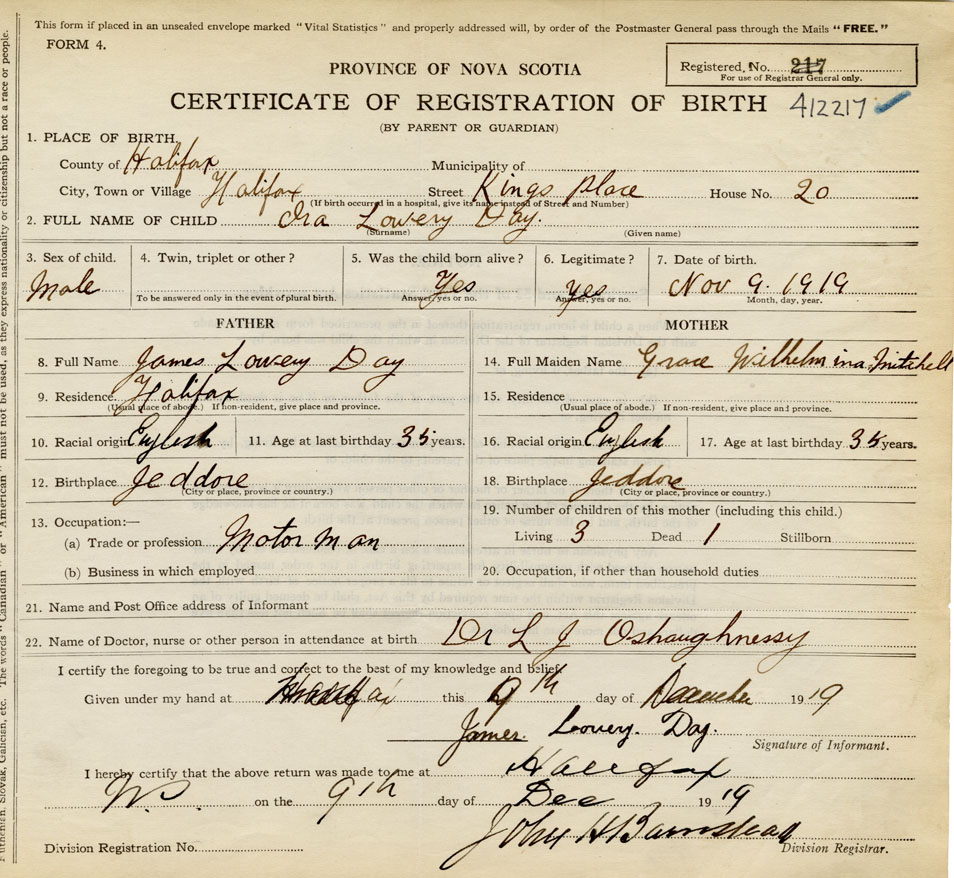 This form if placed in an unsealed envelope marked "Vital Statistics" and properly addressed will, by order of the Postmaster General pass through the Mails "FREE."
FORM 4.
Registered, No. 217
For use of Registrar General only.
PROVINCE OF NOVA SCOTIA
CERTIFICATE OF REGISTRATION OF BIRTH 412217
(BY PARENT OR GUARDIAN)
1. PLACE OF BIRTH,
County of Halifax Municipality of
City, Town or Village Halifax Street Kings Place House No. 20
(If birth occurred in a hospital, give its name instead of Street and Number)
2. FULL NAME OF CHILD Ira Lowery Day.
(Surname) (Given name)
3. Sex of child. 4. Twin, triplet or other? 5. Was the child born alive? 6. Legitimate? 7. Date of birth.
Male Yes yes Nov 9. 1919
To be answered only in the event of plural birth. Answer, yes or no. Answer, yes or no. Month, day, year.
FATHER MOTHER
8. Full Name James Lowery Day 14. Full Maiden Name Grace Wilhelmina Mitchell
9. Residence Halifax 15. Residence
(Usual place of abode.) If non-resident, give place and province. (Usual place of abode.) If non-resident, give place and province.
10. Racial origin English 11. Age at last birthday 35 years. 16. Racial origin English 17. Age at last birthday 35 years.
12. Birthplace Jeddore 18. Birthplace Jeddore
(City or place, province or country.) (City or place, province or country.)
13. Occupation:— 19. Number of children of this mother (including this child.)
(a) Trade or profession Motor man Living 3 Dead 1 Stillborn
(b) Business in which employed 20. Occupation, if other than household duties
21. Name and Post Office address of Informant
22. Name of Doctor, nurse or other person in attendance at birth Dr L J Oshaughnessy
I certify the foregoing to be true and correct to the best of my knowledge and belief
Given under my hand at this 9th day of December 1919
James Lowery Day.
Signature of Informant.
I hereby certify that the above return was made to me at Halifax
N.S. on the 9th day of Dec 1919
John H Barnstead
Division Registration No. Division Registrar.
Ruthenian, Slovak, Galician, etc. The words "Canadian" or "American" must not be used, as they express nationality or citizenship but not a race or people.